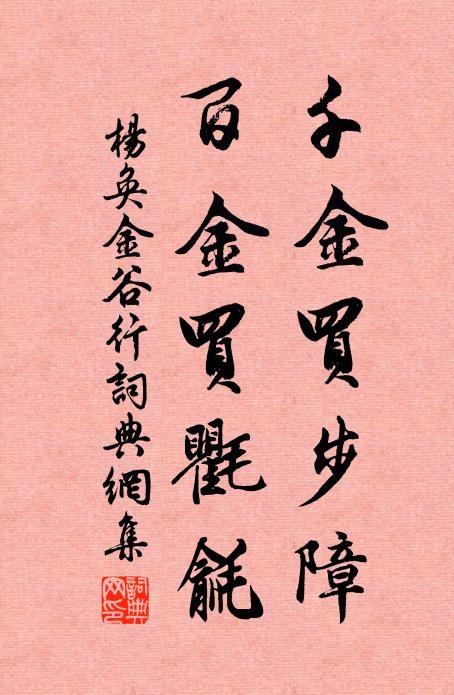 千金買步障
百金買氍毹
楊奐金谷行詞典網集
詞典
网印